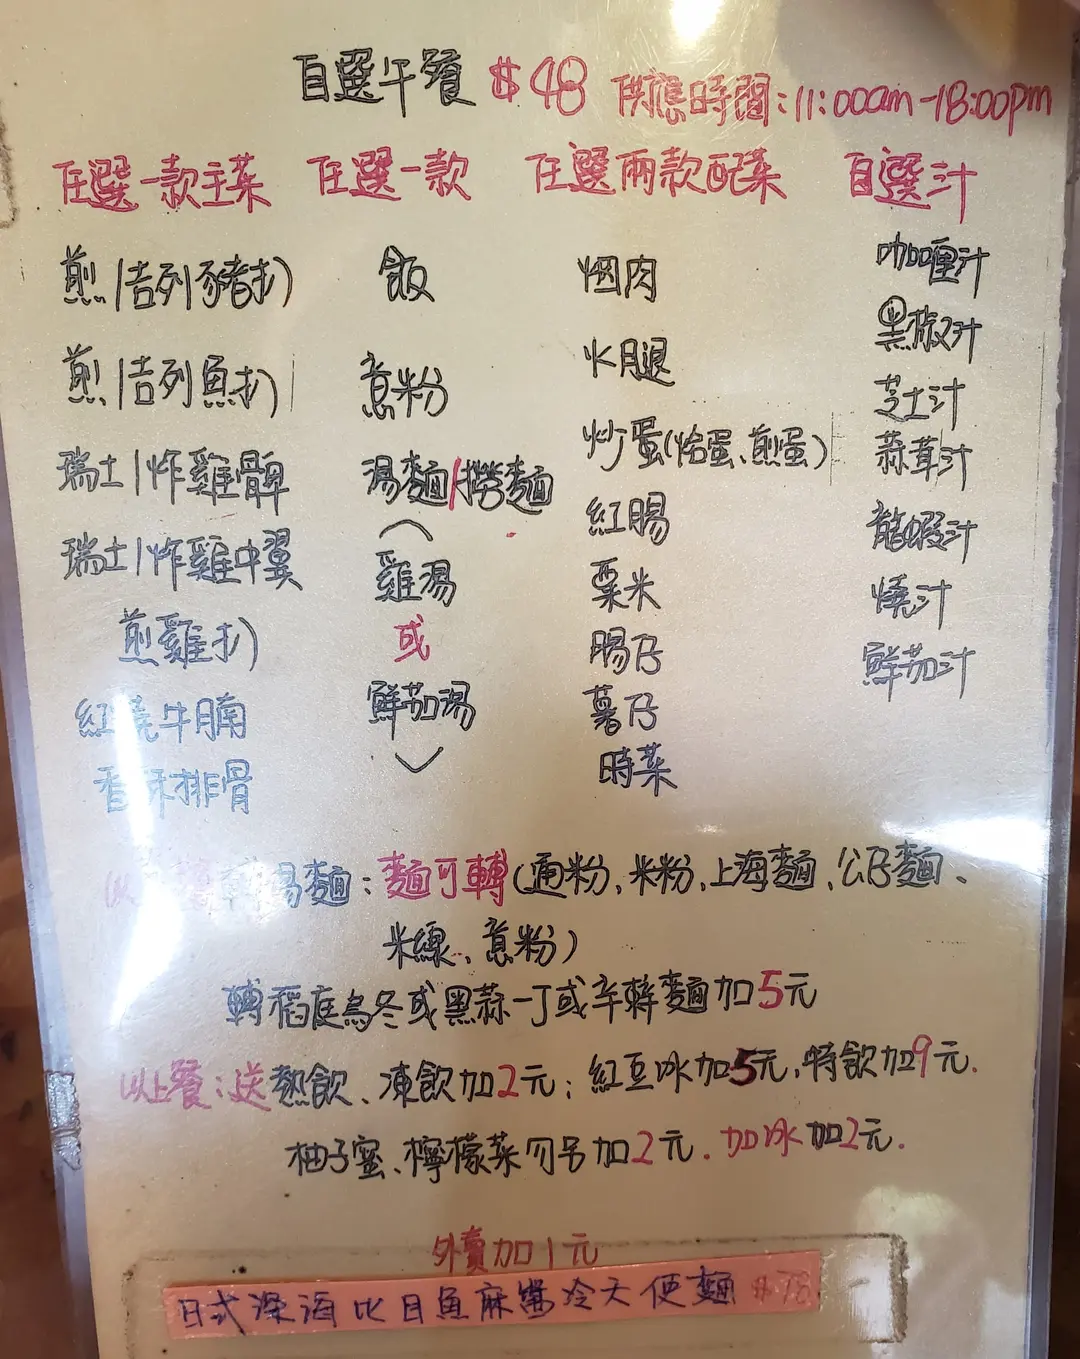 自選午餐 $48 供應時間:11:00am-18:00pm
任選一款主菜 任選一款 任選兩款配菜 自選汁
煎/吉列豬扒 飯 烟肉 咖喱汁
煎/吉列魚扒 意粉 火腿 黑椒汁
瑞士/炸雞髀 湯麵/撈麵 炒蛋(炲蛋、煎蛋) 芝士汁
瑞士/炸雞中翼 (雞湯 紅腸 蒜茸汁
煎雞扒 或 粟米 龍蝦汁
紅燒牛腩 鮮茄湯) 腸仔 燒汁
香酥排骨 薯仔 鮮茄汁
時菜
湯麵:麵可轉(通粉、米粉、上海麵、公仔麵、
米線、意粉)
轉稻庭烏冬或黑蒜一丁或辛辣麵加5元
以上餐:送熱飲、凍飲加2元;紅豆冰加5元,特飲加9元.
柚子蜜、檸檬茶勿号加2元.加冰加2元.
外賣加1元
日式深海比目魚麻當冷天使麵 $78